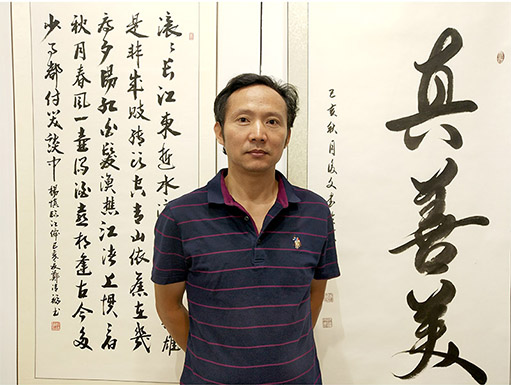 真善美
己亥秋月
滚〻长江東逝水
雄
是非成败转头空青山依舊在幾
度夕陽红白髮漁樵江渚上惯看
秋月春風一壶浊酒喜相逢古今多
少事都付笑谈中 楊慎临江仙 己亥秋鄭清
書